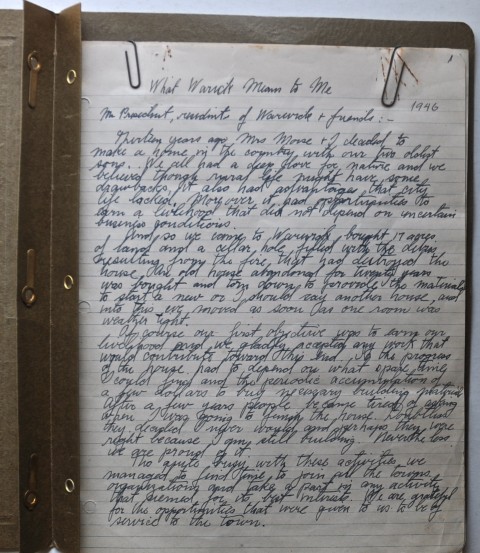 What Warwick Means to Me
1946
Mr President, residents of Warwick & friends:-
Thirteen years ago Mrs Morse & I decided to
make a home in the country with our two oldest
sons. We all had a deep love for nature and we
believed though rural life might have some
drawbacks, it also had advantages that city
life lacked. Moreover it had opportunities to
earn a livelihood that did not depend on uncertain
business conditions.
And so we came to Warwick, bought 17 acres
of land and a cellar hole filled with the debris
resulting from the fire that had destroyed the
house. An old house abandoned for twenty years
was bought and torn down to provide the materials
to start a new or I should say another house, and
into this we moved as soon as one room was
weather tight.
Of course our first objective was to earn our
livelihood and we gladly accepted any work that
would contribute toward this end. So the progress
of the house had to depend on what spare time
I could find and the periodic accumulation of
a few dollars to buy necessary building material.
After a few years people became tired of asking
when I was going to finish the house
they decided I never would and perhaps they were
right because I am still building. Nevertheless
we are proud of it.
Tho quite busy with these activities we
managed to find time to join all the towns
organizations and take a part in any activity
that seemed for its best interests. We are grateful
for the opportunities that were given to us to be of
service to the town.